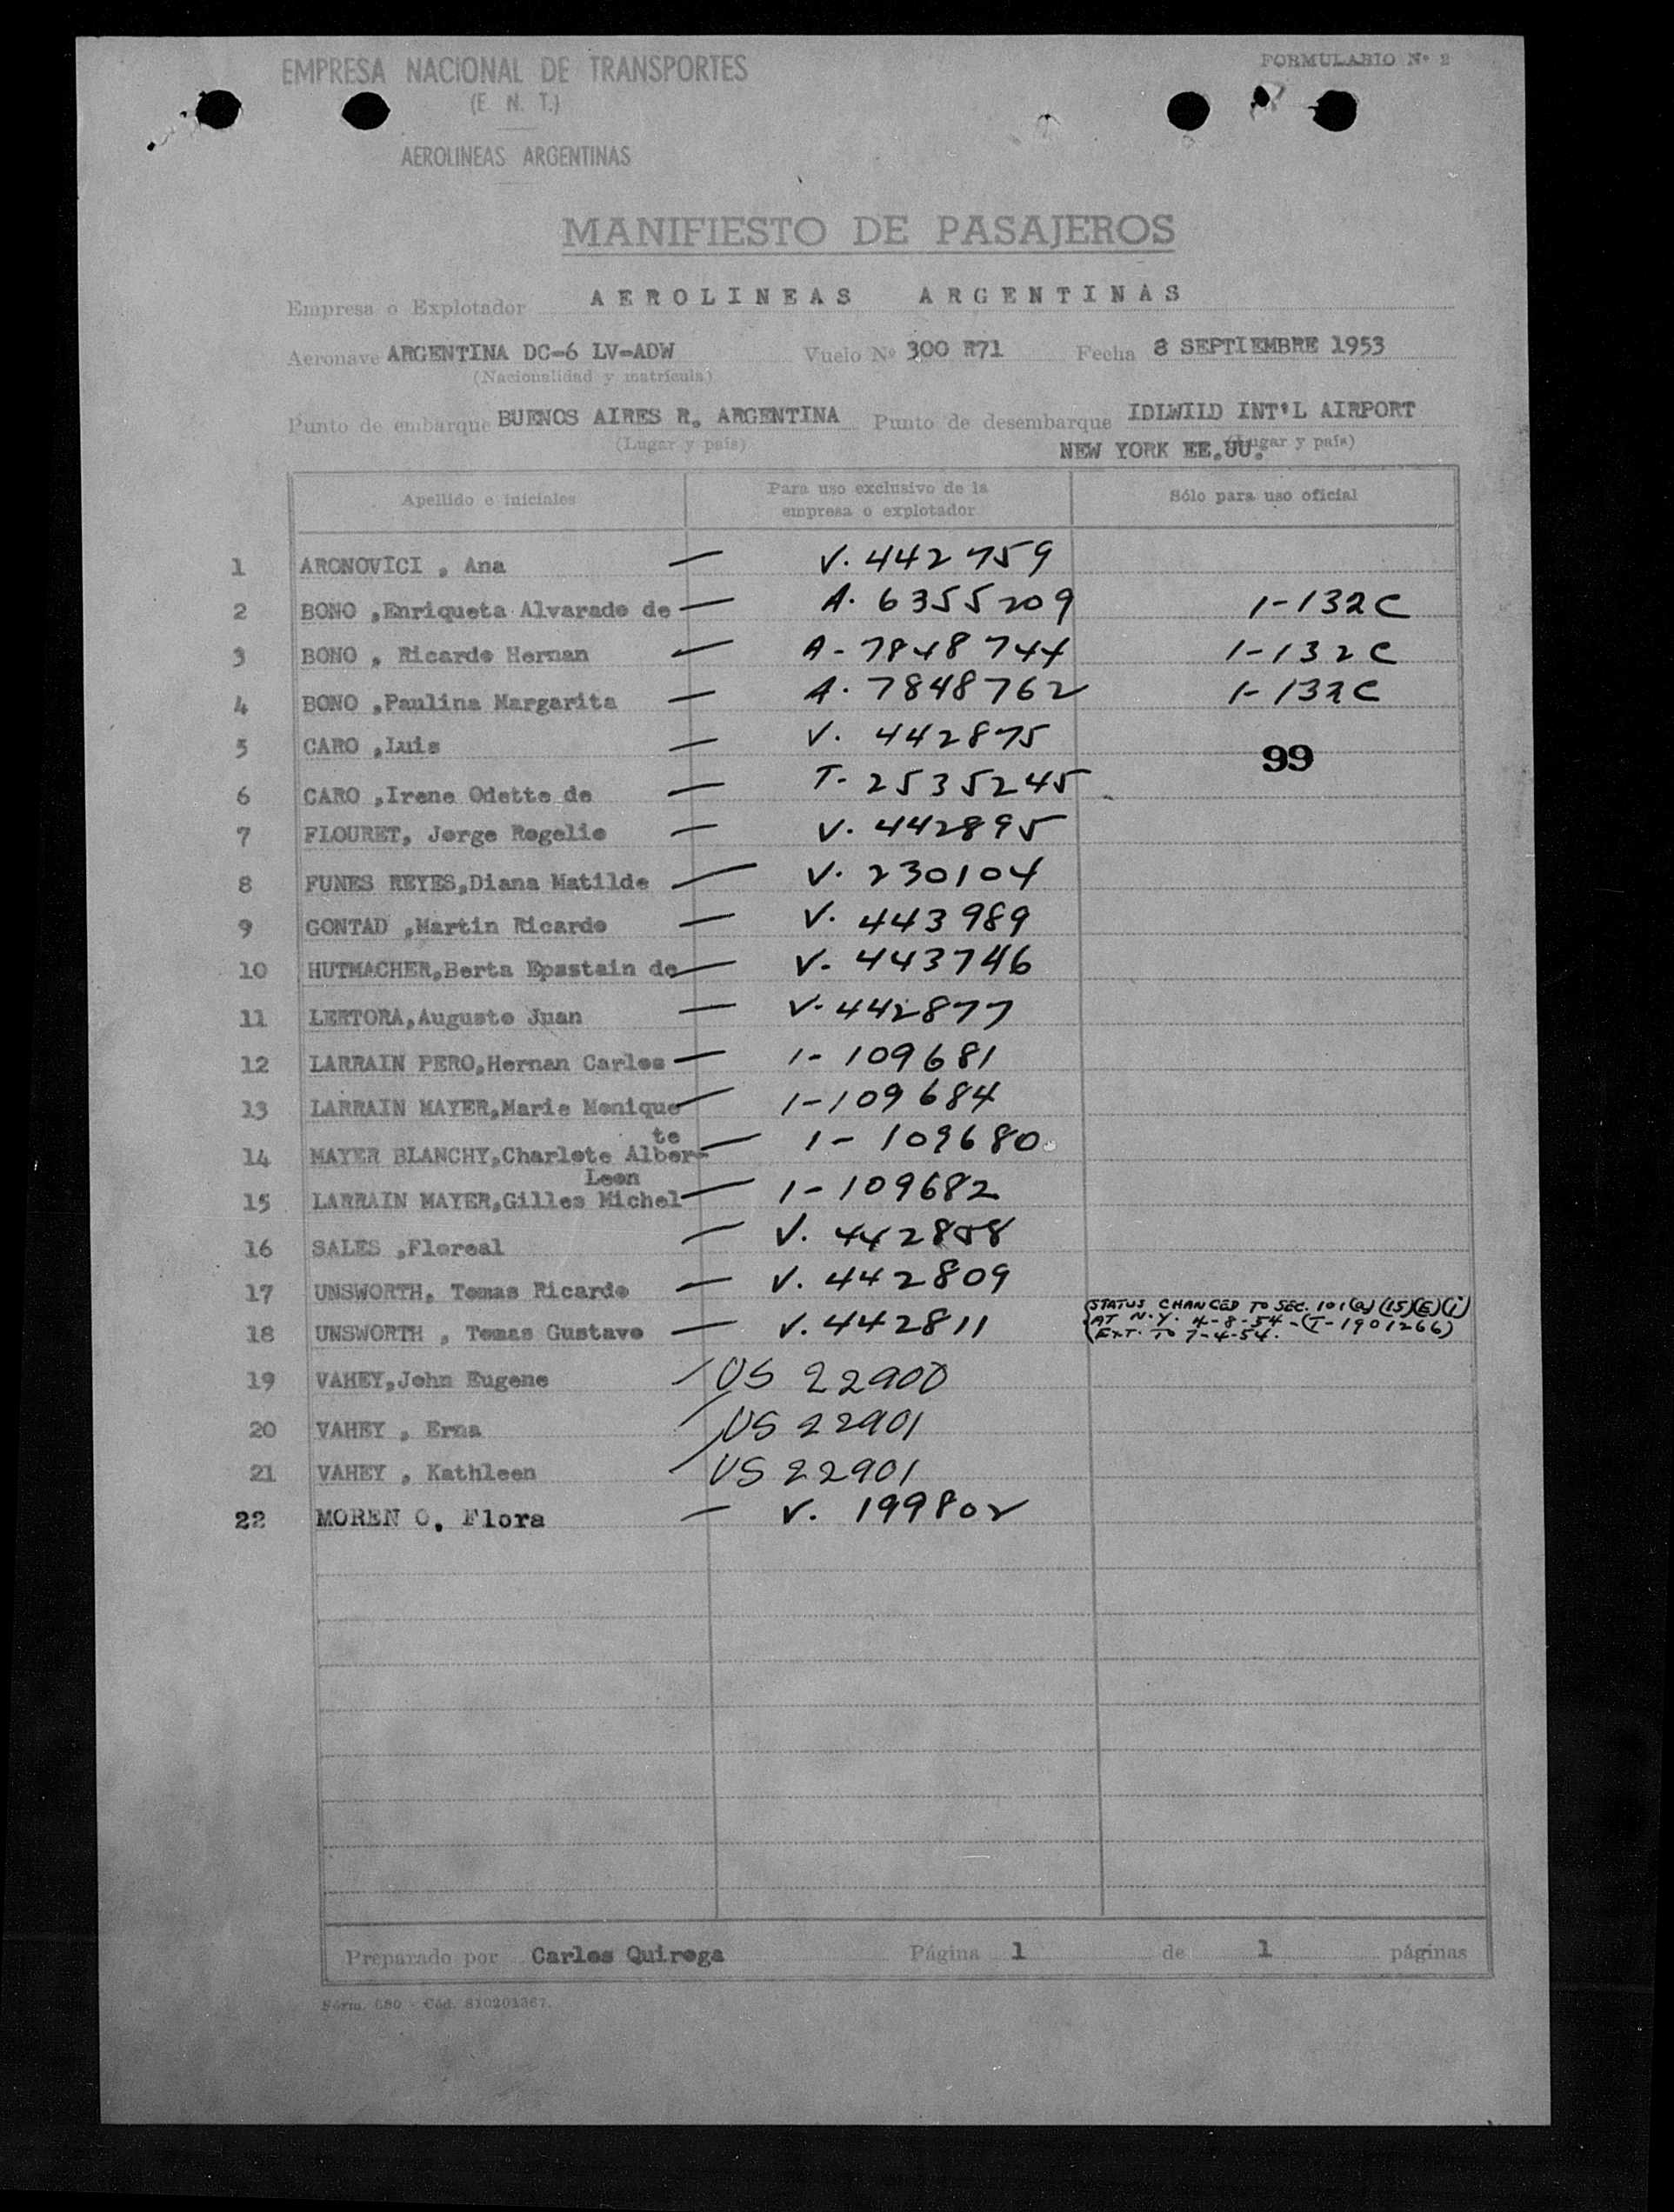 EMPRESA NACIONAL DE TRANSPORTES
(E. N. T.)
AEROLINEAS ARGENTINAS
FORMULARIO Nº 2
MANIFIESTO DE PASAJEROS
Empresa o Explotador AEROLINEAS ARGENTINAS
Aeronave ARGENTINA DC-6 LV-ADW Vuelo Nº 300 R71 Fecha 8 SEPTIEMBRE 1953
(Nacionalidad y matrícula)
Punto de embarque BUENOS AIRES R. ARGENTINA Punto de desembarque IDLWILD INT'L AIRPORT
(Lugar y país) NEW YORK EE.UU. (Lugar y país)
Apellido e iniciales Para uso exclusivo de la empresa o explotador Sólo para uso oficial
1 ARONOVICI , Ana — V. 442759
2 BONO ,Enriqueta Alvarado de — A. 6355209 1-132C
3 BONO , Ricardo Hernan — A-7848744 1-132C
4 BONO ,Paulina Margarita — A. 7848762 1-132C
5 CARO ,Luis — V. 442875
99
6 CARO ,Irene Odette de — T-2535245
7 FLOURET, Jorge Rogelio — V. 442895
8 FUNES REYES,Diana Matilde — V. 230104
9 GONTAD ,Martin Ricardo — V. 443989
10 HUTMACHER,Berta Epsstain de — V. 443746
11 LERTORA,Augusto Juan — V-442877
12 LARRAIN PERO,Hernan Carlos — 1-109681
13 LARRAIN MAYER,Marie Monique — 1-109684
te
14 MAYER BLANCHY,Charlote Alber- — 1-109680
Leon
15 LARRAIN MAYER,Gilles Michel — 1-109682
16 SALES ,Floreal — V. 442808
17 UNSWORTH, Tomas Ricardo — V. 442809
18 UNSWORTH , Tomas Gustavo — V. 442811
STATUS CHANGED TO SEC. 101(a)(15)(E)(i)
AT N.Y. 4-8-54-(T-1901266)
EXT. TO 7-4-54.
19 VAHEY,John Eugene / US 22900
20 VAHEY , Erna / US 22901
21 VAHEY , Kathleen / US 22901
22 MOREN O. Flora — V. 199802
Preparado por Carlos Quiroga Página 1 de 1 páginas
Fórm. 680 - Cód. 810201367.